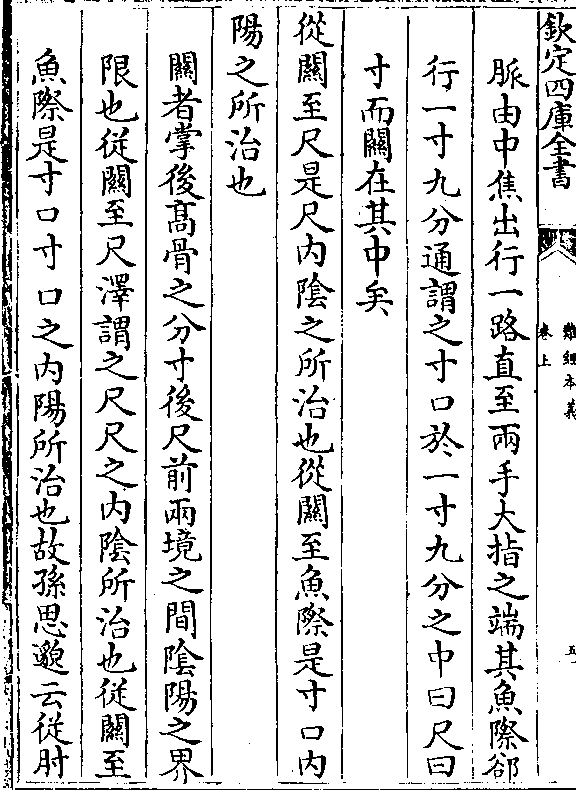 欽定四庫全書
難經本義
卷上
五
脈由中焦出行一路直至兩手大指之端其魚際郤
行一寸九分通謂之寸口於一寸九分之中曰尺曰
寸而關在其中矣
從關至尺是尺内陰之所治也從關至魚際是寸口内
陽之所治也
關者掌後髙骨之分寸後尺前兩境之間陰陽之界
限也從關至尺澤謂之尺尺之内陰所治也從關至
魚際是寸口寸口之内陽所治也故孫思邈云從肘